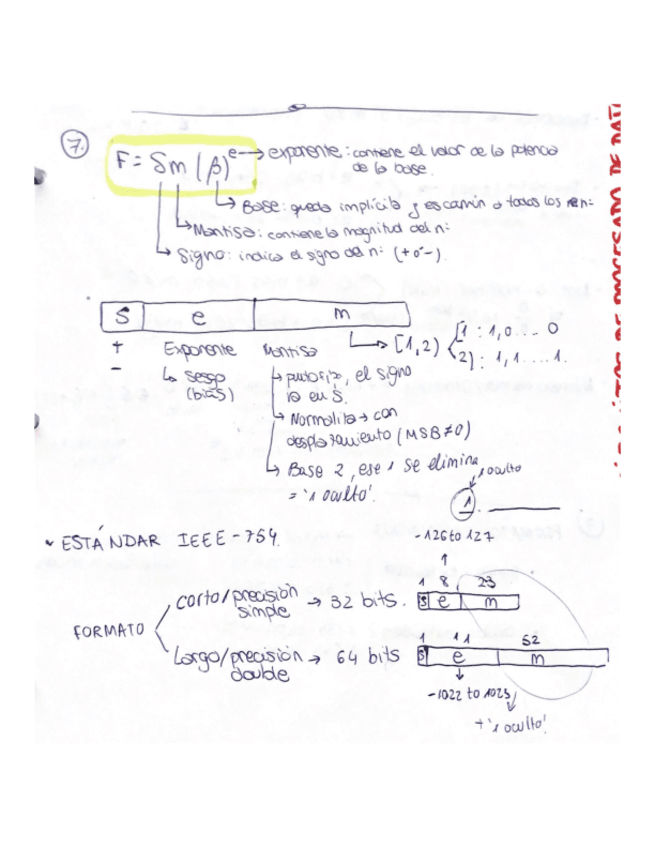 7.
F = Sm(β)^e → exponente: contiene el valor de la potencia
de la base.
→ Base: queda implícita y es común a todos los
→ Mantisa: contiene la magnitud del nº
→ Signo: indica el signo del nº (+ o -).
S e m
+ Exponente Mantisa → [1,2) 1 : 1,0 ... 0
- ↳ sesgo 2) : 1,1 .... 1.
(bias)
el signo
va en S.
→ Normalita → con
desplazamiento (MSB≠0)
→ Base 2, ese 1 se elimina
= '1 oculto'.
1 oculto
1.
ESTÁNDAR IEEE-754.
-126 to 127
1 8 23
FORMATO
corto/precisión
simple → 32 bits.
S e m
largo/precisión
double → 64 bits
1 11 52
S e m
-1022 to 1023
+ '1 oculto'
DE PROCESADO DE DAT